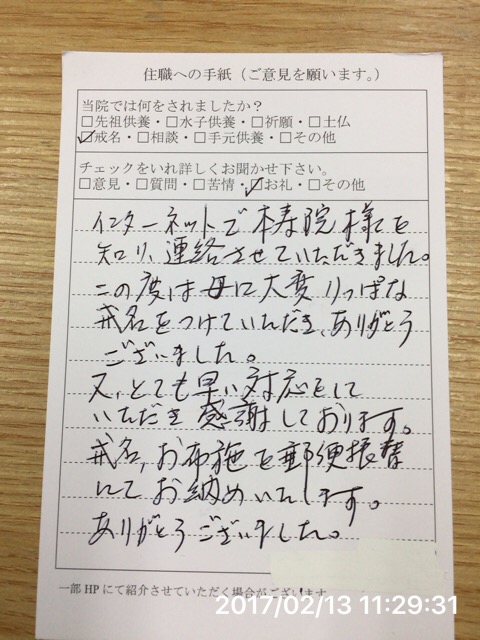 住職への手紙(ご意見を願います。)
当院では何をされましたか?
□先祖供養・□水子供養・□祈願・□土仏
☑戒名・□相談・□手元供養・□その他
チェックをいれ詳しくお聞かせ下さい。
□意見・□質問・□苦情・☑お礼・□その他
インターネットで本寿院様を
知り、連絡させていただきました。
この度は母に大変りっぱな
戒名をつけていただき、ありがとう
ございました。
又、とても早い対応をして
いただき感謝しております。
戒名、お布施を郵便振替
にてお納めいたします。
ありがとうございました。
一部HPにて紹介させていただく場合がございます
2017/02/13 11:29:31